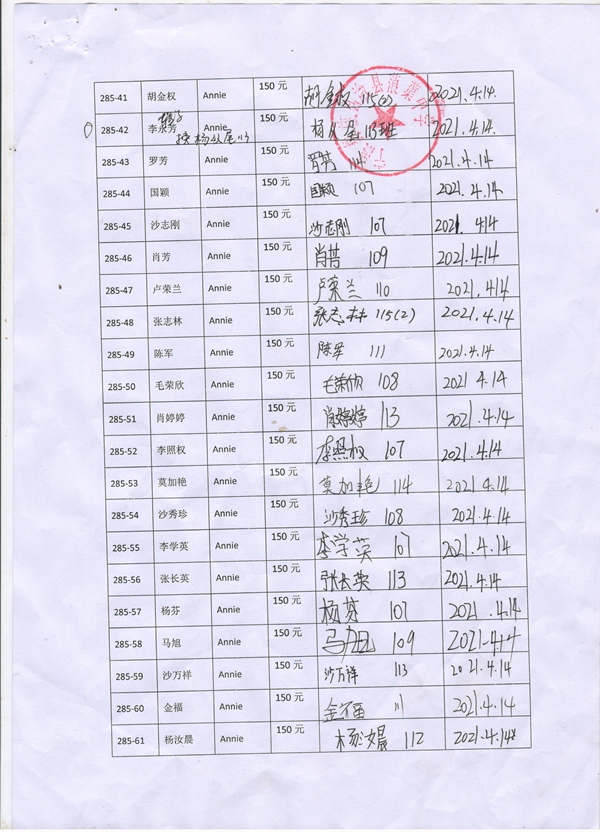 285-41 胡金权 Annie 150 元 胡金权 115(2) 2021.4.14.
285-42 李永芳 Annie 150 元 113班 2021.4.14.
换杨从尾
285-43 罗芳 Annie 150 元 罗芳 114 2021.4.14
285-44 国颖 Annie 150 元 国颖 107 2021.4.14
285-45 沙志刚 Annie 150 元 沙志刚 107 2021. 4.14
285-46 肖芳 Annie 150 元 肖芳 109 2021.4.14
285-47 卢荣兰 Annie 150 元 卢荣兰 110 2021.4.14
285-48 张志林 Annie 150 元 张志林 115(2) 2021.4.14
285-49 陈军 Annie 150 元 陈军 111 2021.4.14
285-50 毛荣欣 Annie 150 元 毛荣欣 108 2021 4.14
285-51 肖婷婷 Annie 150 元 肖婷婷 113 2021.4.14
285-52 李照权 Annie 150 元 李照权 107 2021.4.14
285-53 莫加艳 Annie 150 元 莫加艳 114 2021 4.14
285-54 沙秀珍 Annie 150 元 沙秀珍 108 2021.4.14
285-55 李学英 Annie 150 元 李学英 107 2021.4.14
285-56 张长英 Annie 150 元 张长英 113 2021.4.14
285-57 杨芬 Annie 150 元 杨芬 107 2021.4.14
285-58 马旭 Annie 150 元 马旭 109 2021.4.14
285-59 沙万祥 Annie 150 元 沙万祥 113 2021.4.14
285-60 金福 Annie 150 元 金福 111 2021.4.14
285-61 杨汝晨 Annie 150 元 杨汝晨 112 2021.4.14